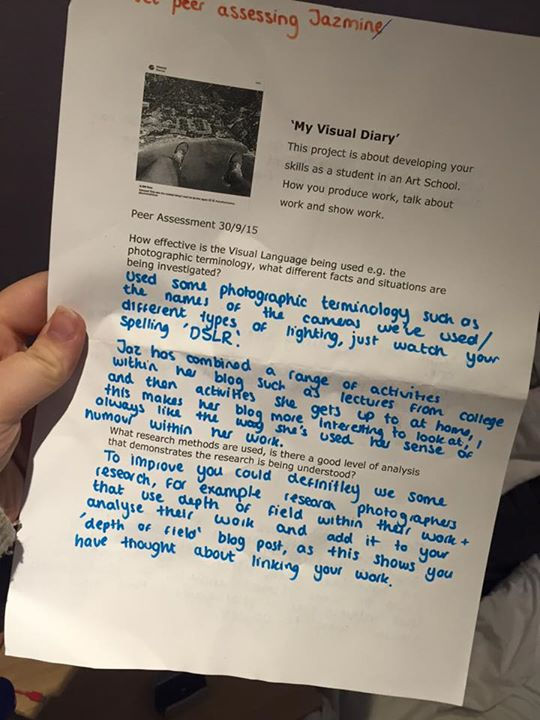 peer assessing Jazmine
'My Visual Diary'
This project is about developing your
skills as a student in an Art School.
How you produce work, talk about
work and show work.
Peer Assessment 30/9/15
How effective is the Visual Language being used e.g. the
photographic terminology, what different facts and situations are
being investigated?
Used some photographic terminology such as
the names of the cameras we've used/
different types of lighting, just watch your
spelling 'DSLR'.
Jaz has combined a range of activities
within her blog such as lectures from college
and then activities she gets up to at home,
this makes her blog more interesting to look at, I
always like the way she's used her sense of
humour within her work.
What research methods are used, is there a good level of analysis
that demonstrates the research is being understood?
To improve you could definitley use some
research, for example research photographers
that use depth of field within their work +
analyse their work and add it to your
'depth of field' blog post, as this shows you
have thought about linking your work.